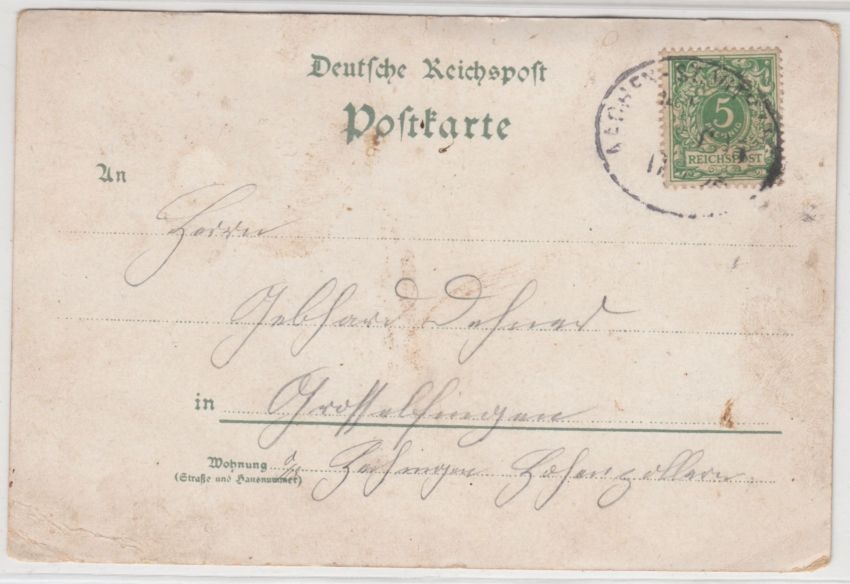 Deutsche Reichspost
Postkarte
5
PFENNIG
REICHSPOST
An
Herrn
Gebhard Dehner
in Grosselfingen
Wohnung b/ Hechingen Hohenzollern
(Straße und Hausnummer)